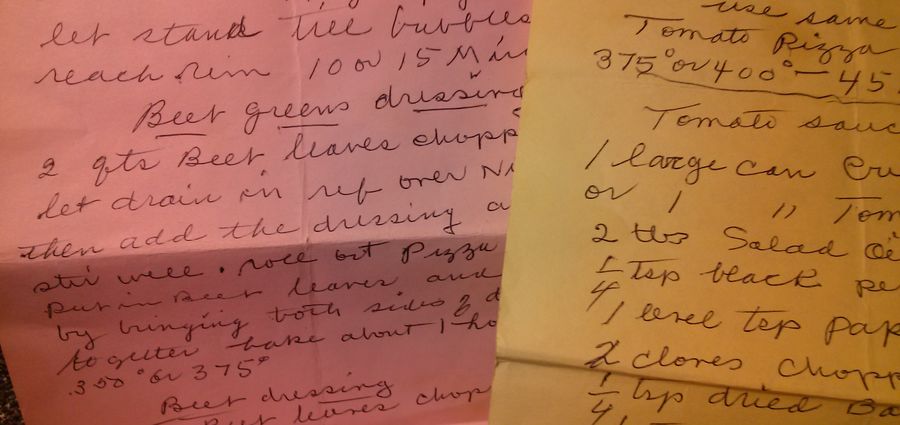 let stand till bubbles
reach rim 10 or 15 Min
Beet greens dressing
2 qts Beet leaves chopp
let drain in ref over Ni
then add the dressing a
stir well. roll out Pizza
put in Beet leaves and
by bringing both sides of d
together bake about 1 ho
350° or 375°
Beet dressing
Beet leaves chop
use same
Tomato Pizza
375° or 400° — 45
Tomato sauc
1 large can Cru
or 1 " Tom
2 tbs Salad Oi
1/4 tsp black pe
1 level tsp pap
2 cloves chopp
1/4 tsp dried Ba